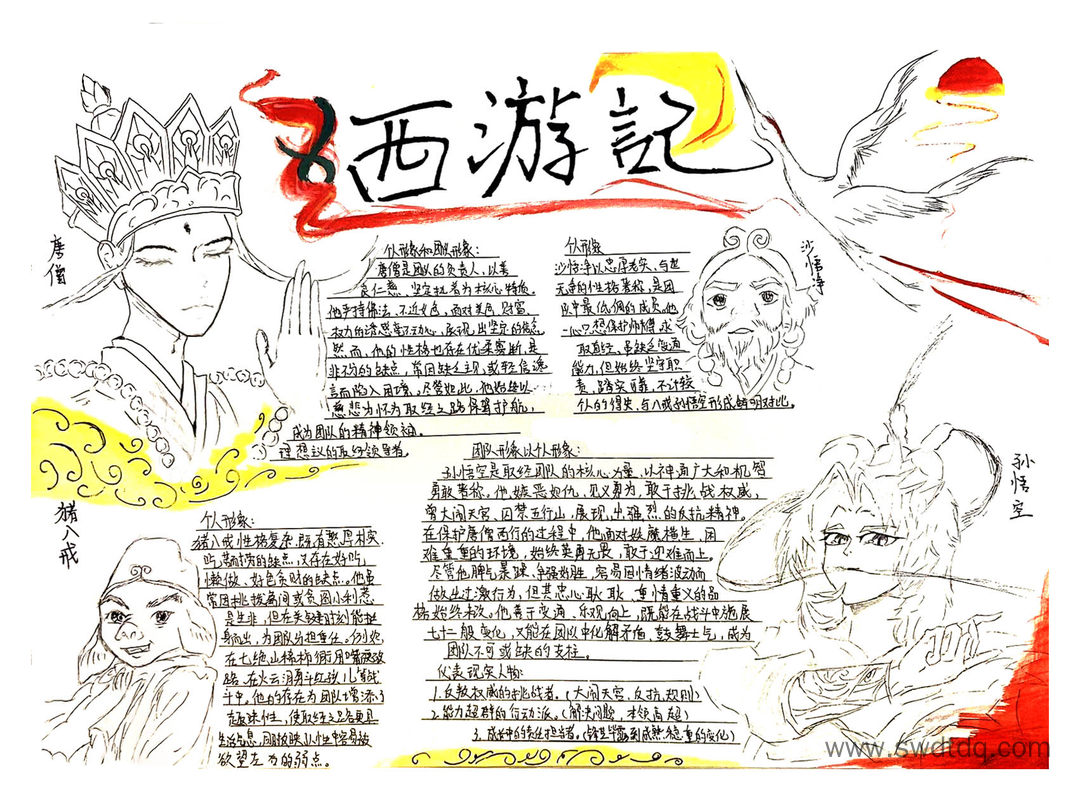 西游記
唐僧
个人形象和团队形象：
唐僧是团队的负责人，以善
良仁慈、坚定执着为核心特质。
他严持佛法、不近女色，面对美色、财富、
权力的诱惑毫不动心，展现出坚定的信念
然而，他的性格也存在优柔寡断，是
非不分的缺点，常因缺乏主观，或轻信谗
言而陷入困境。尽管如此，他始终以
慈悲为怀为取经之路保驾护航，
成为团队的精神领袖。
理想议的取经领导者。
个人形象
沙悟净以忠厚老实、与世
无争的性格著称，是团
队中最低调的成员。他
一心只想保护师傅求
取真经，虽缺乏变通
能力，但始终坚守职
责，踏实可靠，不计较
个人的得失，与八戒孙悟空形成鲜明对比。
沙悟净
团队形象以个人形象：
孙悟空是取经团队的核心力量，以神通广大和机智
勇敢著称，他嫉恶如仇、见义勇为，敢于挑战权威，
曾大闹天宫、囚禁五行山，展现出强烈的反抗精神。
在保护唐僧西行的过程中，他面对妖魔横生、困
难重重的环境，始终英勇无畏，敢于迎难而上。
尽管他脾气暴躁、争强好胜，容易因情绪波动而
做出过激行为，但其忠心耿耿、重情重义的品
格始终未改。他善于变通、乐观向上，既能在战斗中施展
七十二般变化，又能在团队中化解矛盾、鼓舞士气，成为
团队不可或缺的支柱。
仪表现实人物：
1.反叛权威的挑战者。（大闹天宫、反抗规则）
2.能力超群的行动派。（解决问题，本领高超）
3.成长中的责任担当者。（锋芒毕露到成熟稳重的变化）
孙悟空
猪八戒
个人形象：
猪八戒性格复杂，既有憨厚朴实、
吃苦耐劳的缺点，又存在好吃
懒做、好色贪财的缺点。他虽
常因挑拨离间或贪图小利惹
是生非，但在关键时刻能挺
身而出，为团队分担重任。例如
在七绝山稀柿衕用嘴
路，在火云洞勇斗红孩儿等战
斗中，他的存在为团队增添了
趣味性，使取经之路更具
生活气息，同时反映出人性中容易被
欲望左右的弱点。
www.swdtdq.com